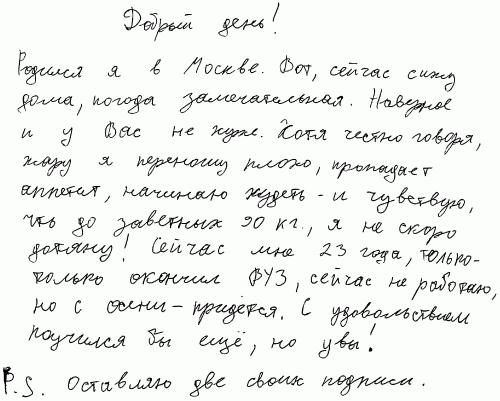 Добрый день!
Родился я в Москве. Вот, сейчас сижу
дома, погода замечательная. Наверное
и у Вас не хуже. Хотя честно говоря,
жару я переношу плохо, пропадает
аппетит, начинаю худеть - и чувствую,
что до заветных 90 кг., я не скоро
дотяну! Сейчас мне 23 года, только-
только окончил ВУЗ, сейчас не работаю,
но с осени - придётся. С удовольствием
поучился бы ещё, но увы!
P.S. Оставляю две своих подписи.